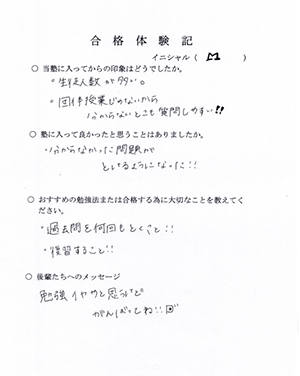 合格体験記
イニシャル（ M ）
○ 当塾に入ってからの印象はどうでしたか。
・生徒人数が少ない。
・団体授業じゃないから
分からないとこも質問しやすい!!
○ 塾に入って良かったと思うことはありましたか。
分からなかった問題が
とけるようになった!!
○ おすすめの勉強法または合格する為に大切なことを教えてく
ださい。
・過去問を何回もとくこと!!
・復習すること!!
○ 後輩たちへのメッセージ
勉強イヤやと思うけど
がんばってね!!